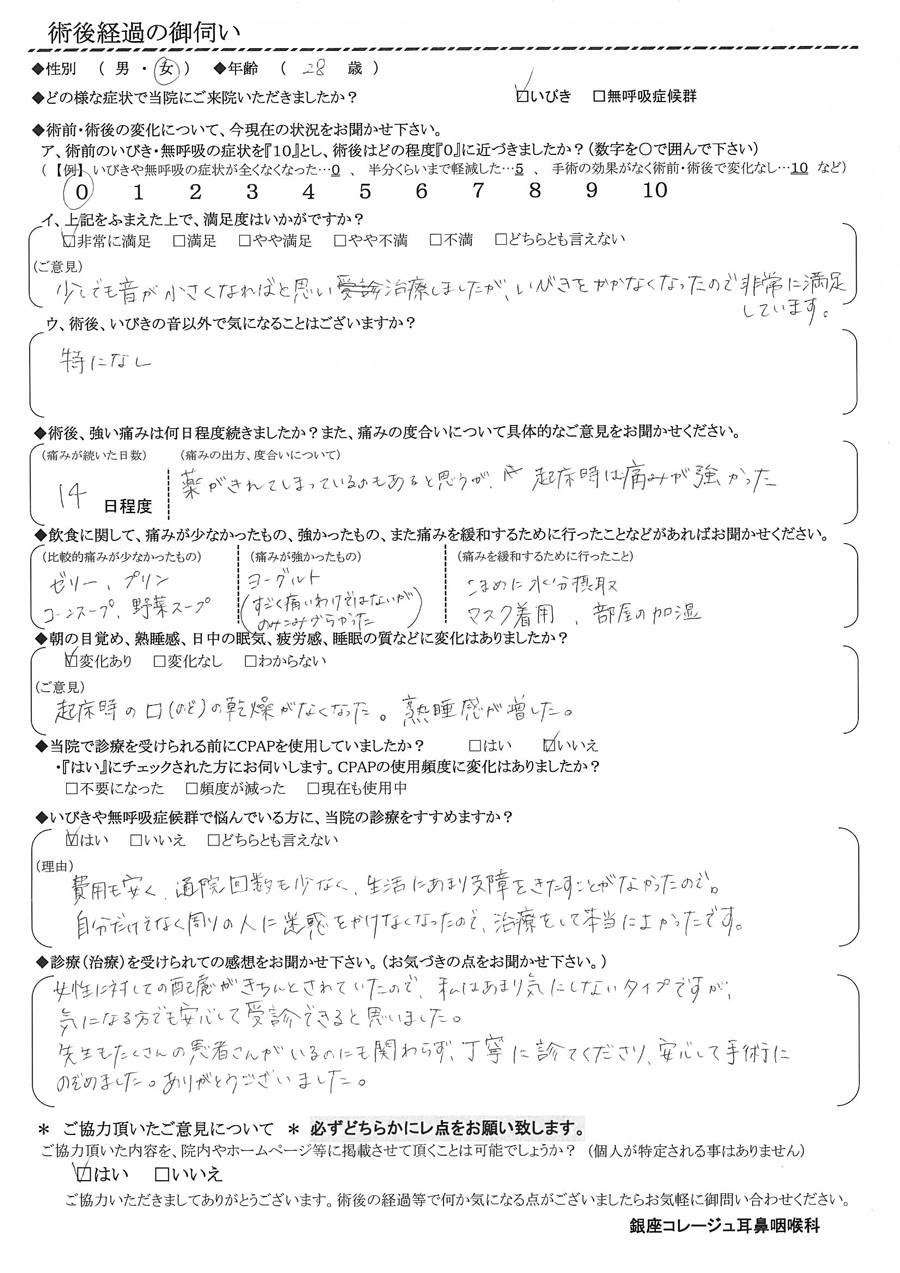 術後経過の御伺い
◆性別 ( 男 ・ 女 ) ◆年齢 ( 28 歳 )
◆どの様な症状で当院にご来院いただきましたか? ☑いびき □無呼吸症候群
◆術前・術後の変化について、今現在の状況をお聞かせ下さい。
ア、術前のいびき・無呼吸の症状を『10』とし、術後はどの程度『0』に近づきましたか?(数字を○で囲んで下さい)
(【例】いびきや無呼吸の症状が全くなくなった…0 、 半分くらいまで軽減した…5 、 手術の効果がなく術前・術後で変化なし…10 など)
0 1 2 3 4 5 6 7 8 9 10
イ、上記をふまえた上で、満足度はいかがですか?
☑非常に満足 □満足 □やや満足 □やや不満 □不満 □どちらとも言えない
(ご意見)
少しでも音が小さくなればと思い受診治療しましたが、いびきをかかなくなったので非常に満足
しています。
ウ、術後、いびきの音以外で気になることはございますか?
特になし
◆術後、強い痛みは何日程度続きましたか?また、痛みの度合いについて具体的なご意見をお聞かせください。
(痛みが続いた日数) (痛みの出方、度合いについて)
14 日程度 薬がきれてしまっているのもあると思うが、起床時は痛みが強かった
◆飲食に関して、痛みが少なかったもの、強かったもの、また痛みを緩和するために行ったことなどがあればお聞かせください。
(比較的痛みが少なかったもの) (痛みが強かったもの) (痛みを緩和するために行ったこと)
ゼリー、プリン ヨーグルト こまめに水分摂取
コーンスープ、野菜スープ (すごく痛いわけではないが のみこみづらかった) マスク着用、部屋の加湿
◆朝の目覚め、熟睡感、日中の眠気、疲労感、睡眠の質などに変化はありましたか?
☑変化あり □変化なし □わからない
(ご意見)
起床時の口(のど)の乾燥がなくなった。熟睡感が増した。
◆当院で診療を受けられる前にCPAPを使用していましたか? □はい ☑いいえ
・『はい』にチェックされた方にお伺いします。CPAPの使用頻度に変化はありましたか?
□不要になった □頻度が減った □現在も使用中
◆いびきや無呼吸症候群で悩んでいる方に、当院の診療をすすめますか?
☑はい □いいえ □どちらとも言えない
(理由)
費用も安く、通院回数も少なく、生活にあまり支障をきたすことがなかったので。
自分だけでなく周りの人に迷惑をかけなくなったので、治療をして本当によかったです。
◆診療(治療)を受けられての感想をお聞かせ下さい。(お気づきの点をお聞かせ下さい。)
女性に対しての配慮がきちんとされていたので、私はあまり気にしないタイプですが、
気になる方でも安心して受診できると思いました。
先生もたくさんの患者さんがいるのにも関わらず、丁寧に診てくださり、安心して手術に
のぞめました。ありがとうございました。
* ご協力頂いたご意見について * 必ずどちらかにレ点をお願い致します。
ご協力頂いた内容を、院内やホームページ等に掲載させて頂くことは可能でしょうか? (個人が特定される事はありません)
☑はい □いいえ
ご協力いただきましてありがとうございます。術後の経過等で何か気になる点がございましたらお気軽に御問い合わせください。
銀座コレージュ耳鼻咽喉科